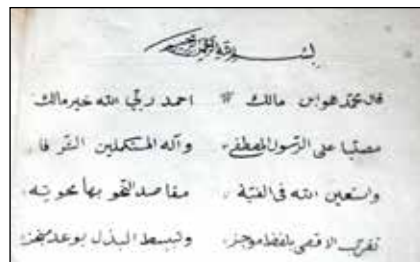 بسم الله الرحمن الرحيم
قال محمد هو ابن مالك * احمد ربي الله خير مالك
مصليا على الرسول المصطفى وآله المستكملين الشرفا
واستعين الله فى الفيه مقاصد النحو بها محويه
تقرب الاقصى بلفظ موجز وتبسط البذل بوعد منجز